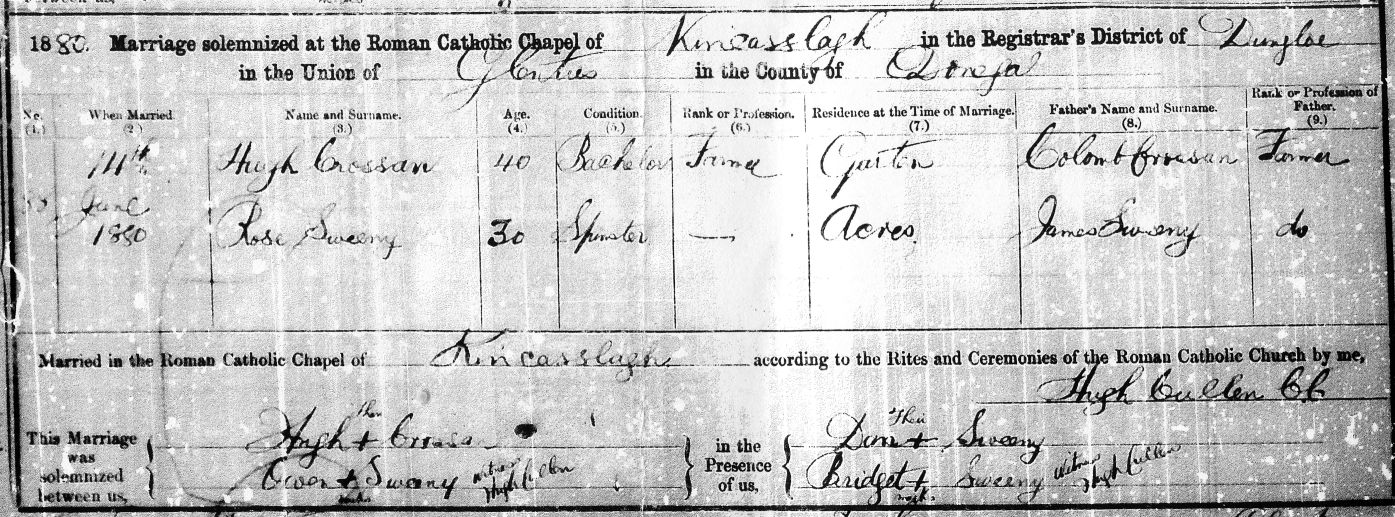 1880. Marriage solemnized at the Roman Catholic Chapel of Kincasslagh in the Registrar's District of Dungloe
in the Union of Glenties in the County of Donegal
No. When Married Name and Surname. Age. Condition. Rank or Profession. Residence at the Time of Marriage. Father's Name and Surname. Rank or Profession of Father.
(1.) (2.) (3.) (4.) (5.) (6.) (7.) (8.) (9.)
14th Hugh Crossan 40 Bachelor Farmer Colomb Crossan Farmer
June
1880 Rose Sweeny 30 Spinster — Acres James Sweeny do
Married in the Roman Catholic Chapel of Kincasslagh according to the Rites and Ceremonies of the Roman Catholic Church by me,
Hugh Cullen CC
This Marriage was solemnized between us,
their
Hugh + Crossan
Owen + Sweeny witness Hugh Cullen
marks
in the Presence of us,
Their
Dan + Sweeny
Bridget + Sweeny witness Hugh Cullen
marks